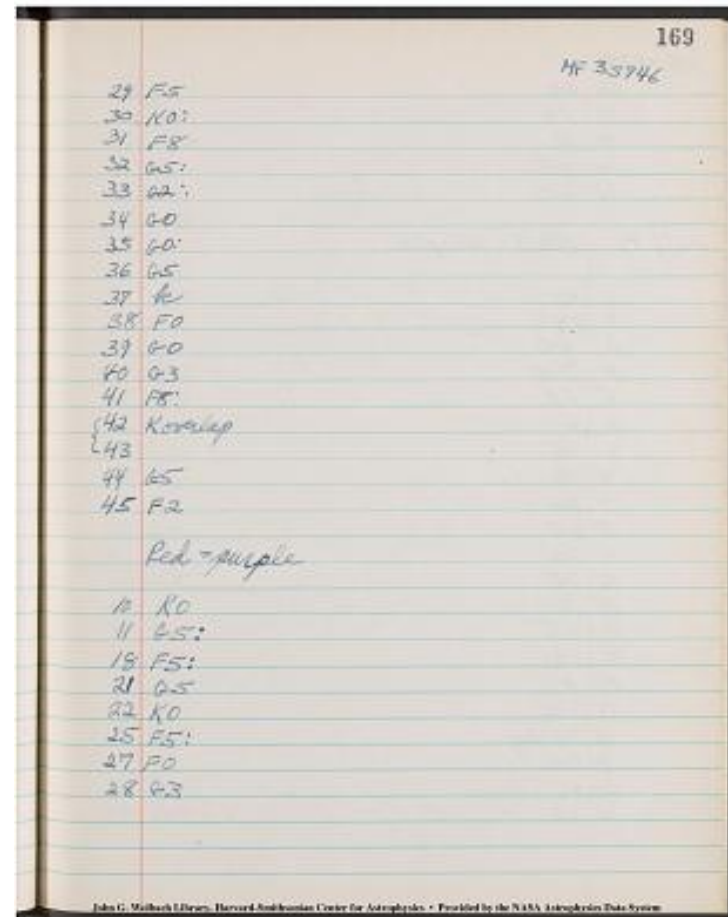 169
MF 35946
29 F5
30 K0:
31 F8
32 G5:
33 G2:
34 G0
35 G0:
36 G5
37 K
38 F0
39 G0
40 G3
41 F8:
{42 K overlap
43
44 G5
45 F2
Red = purple
10 K0
11 G5:
18 F5:
21 G5
22 K0
25 F5:
27 F0
28 G3
John G. Wolbach Library, Harvard-Smithsonian Center for Astrophysics • Provided by the NASA Astrophysics Data System